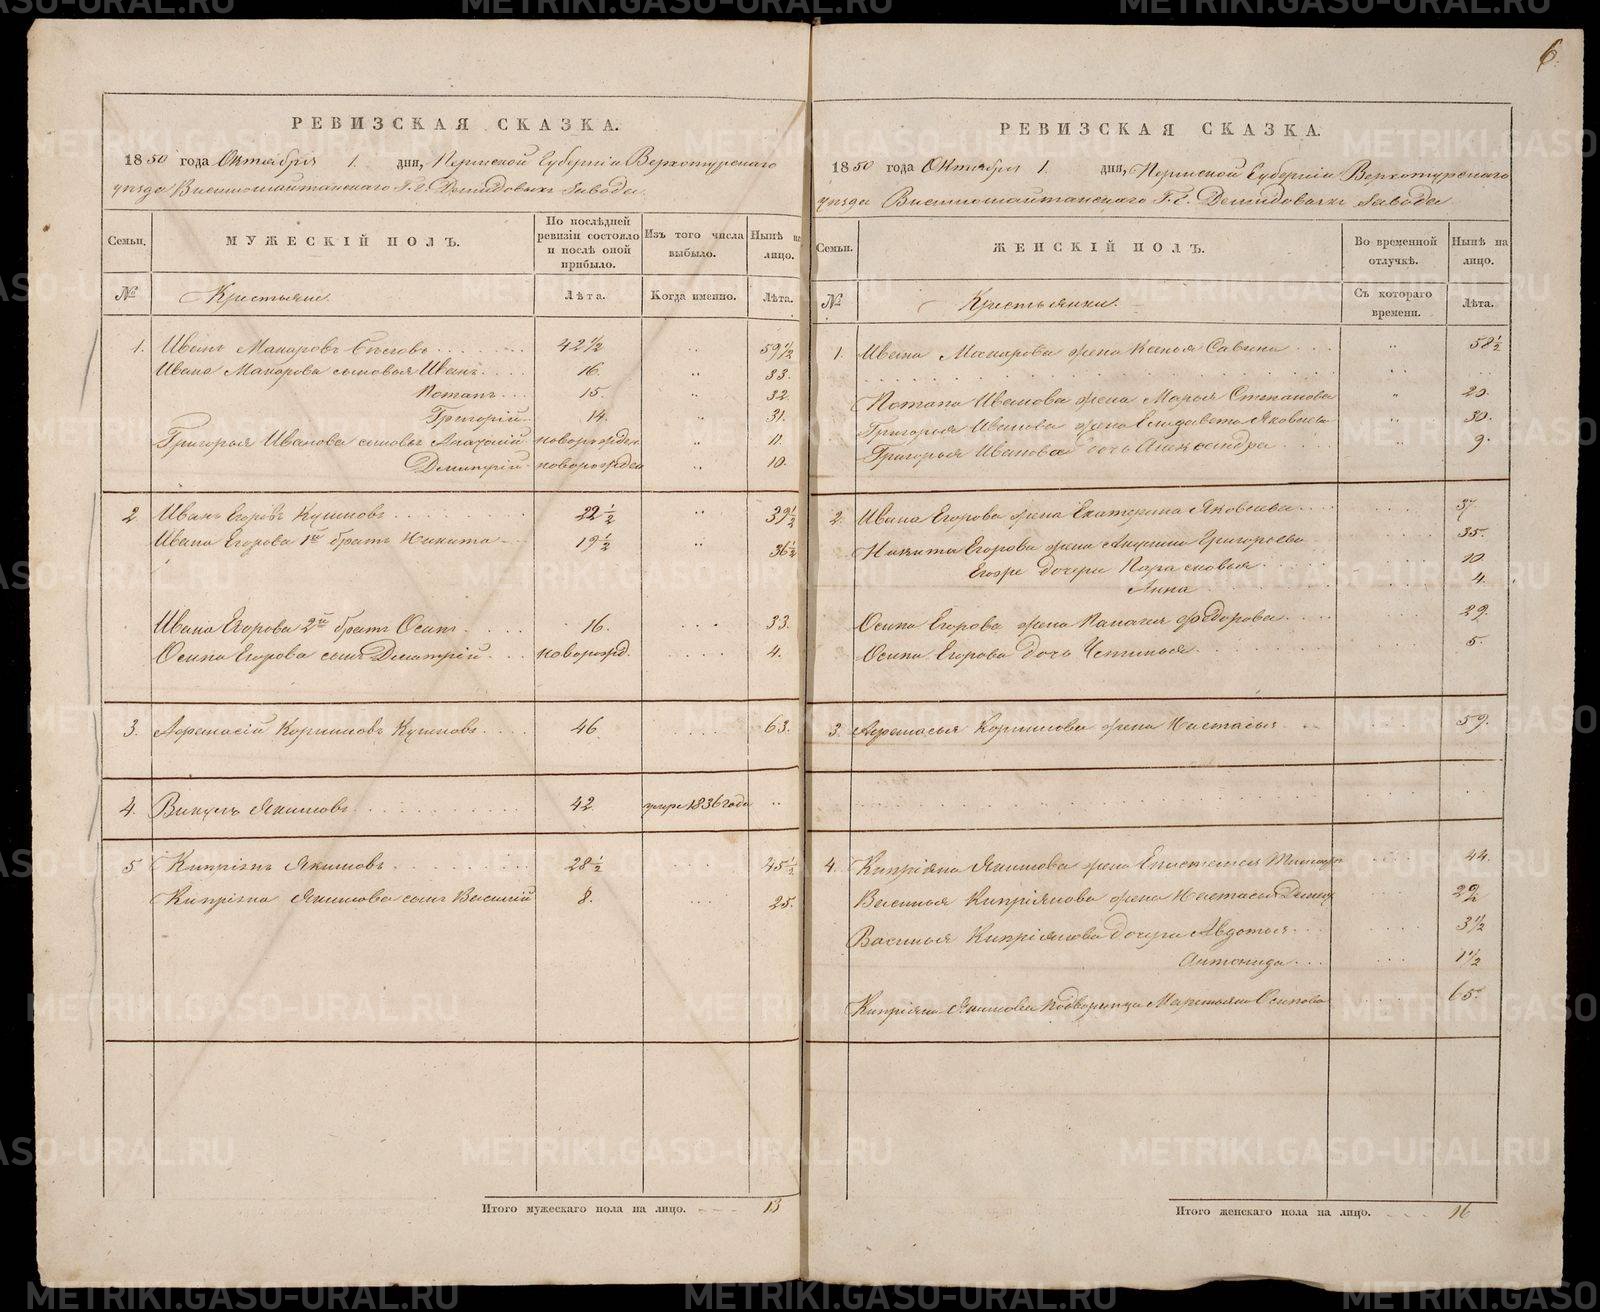 6.
РЕВИЗСКАЯ СКАЗКА.
1850 года Октября 1. дня, Пермской Губерніи Верхотурскаго
уезда Висимошайтанскаго Г.г. Демидовыхъ Завода
Семьи.
МУЖЕСКІЙ ПОЛЪ.
По послѣдней ревизіи состояло и послѣ оной прибыло.
Изъ того числа выбыло.
Нынѣ на лицо.
№ Крестьяне. Лѣта. Когда именно. Лѣта.
1. Иванъ Макаровъ 42½ 59½
Ивана Макарова сыновья Иванъ 16. 33.
Потапъ 15. 32.
Григорій 14. 31.
Григорья Иванова сыновья новорожден 11.
Димитрій новорожден 10.
2 Иванъ Егоровъ Кушновъ 22½ 39½
Ивана Егорова 1й братъ Никита 19½ 36½
Ивана Егорова 2й братъ Осипъ 16. 33.
Осипа Егорова сынъ Димитрій новорожд. 4.
3. Афанасій Корниловъ Кушновъ 46. 63.
4. Викулъ Якимовъ 42 умре 1836 года
5 Кипріянъ Якимовъ 28½ 45½
Кипріяна Якимова сынъ Василій 8. 25.
Итого мужескаго пола на лицо. 13
РЕВИЗСКАЯ СКАЗКА.
1850 года Октября 1. дня, Пермской Губерніи Верхотурскаго
уезда Висимошайтанскаго Г.г. Демидовыхъ Завода
Семьи.
ЖЕНСКІЙ ПОЛЪ.
Во временной отлучкѣ.
Нынѣ на лицо.
№ Крестьянки. Съ котораго времени. Лѣта.
1. Ивана Макарова жена Ксенья Савина 58½
Потапа Иванова жена Марья Степанова 20.
Григорья Иванова жена Елизавета Яковлева 30.
Григорья Иванова дочь Александра 9.
2. Ивана Егорова жена Екатерина Яковлева 37.
Никиты Егорова жена Григорьева 35.
Егоже дочери Парасковья 10.
Анна 4.
Осипа Егорова жена Пелагея Федорова 29.
Осипа Егорова дочь 5.
3. Афанасья Корнилова жена Настасья 59.
4. Кипріяна Якимова жена 44.
Василья Кипріянова жена Настасья 22½
Василья Кипріянова дочери Авдотья 3½
Антонида 1½
Кипріяна Якимова Осипова 65.
Итого женскаго пола на лицо. 16